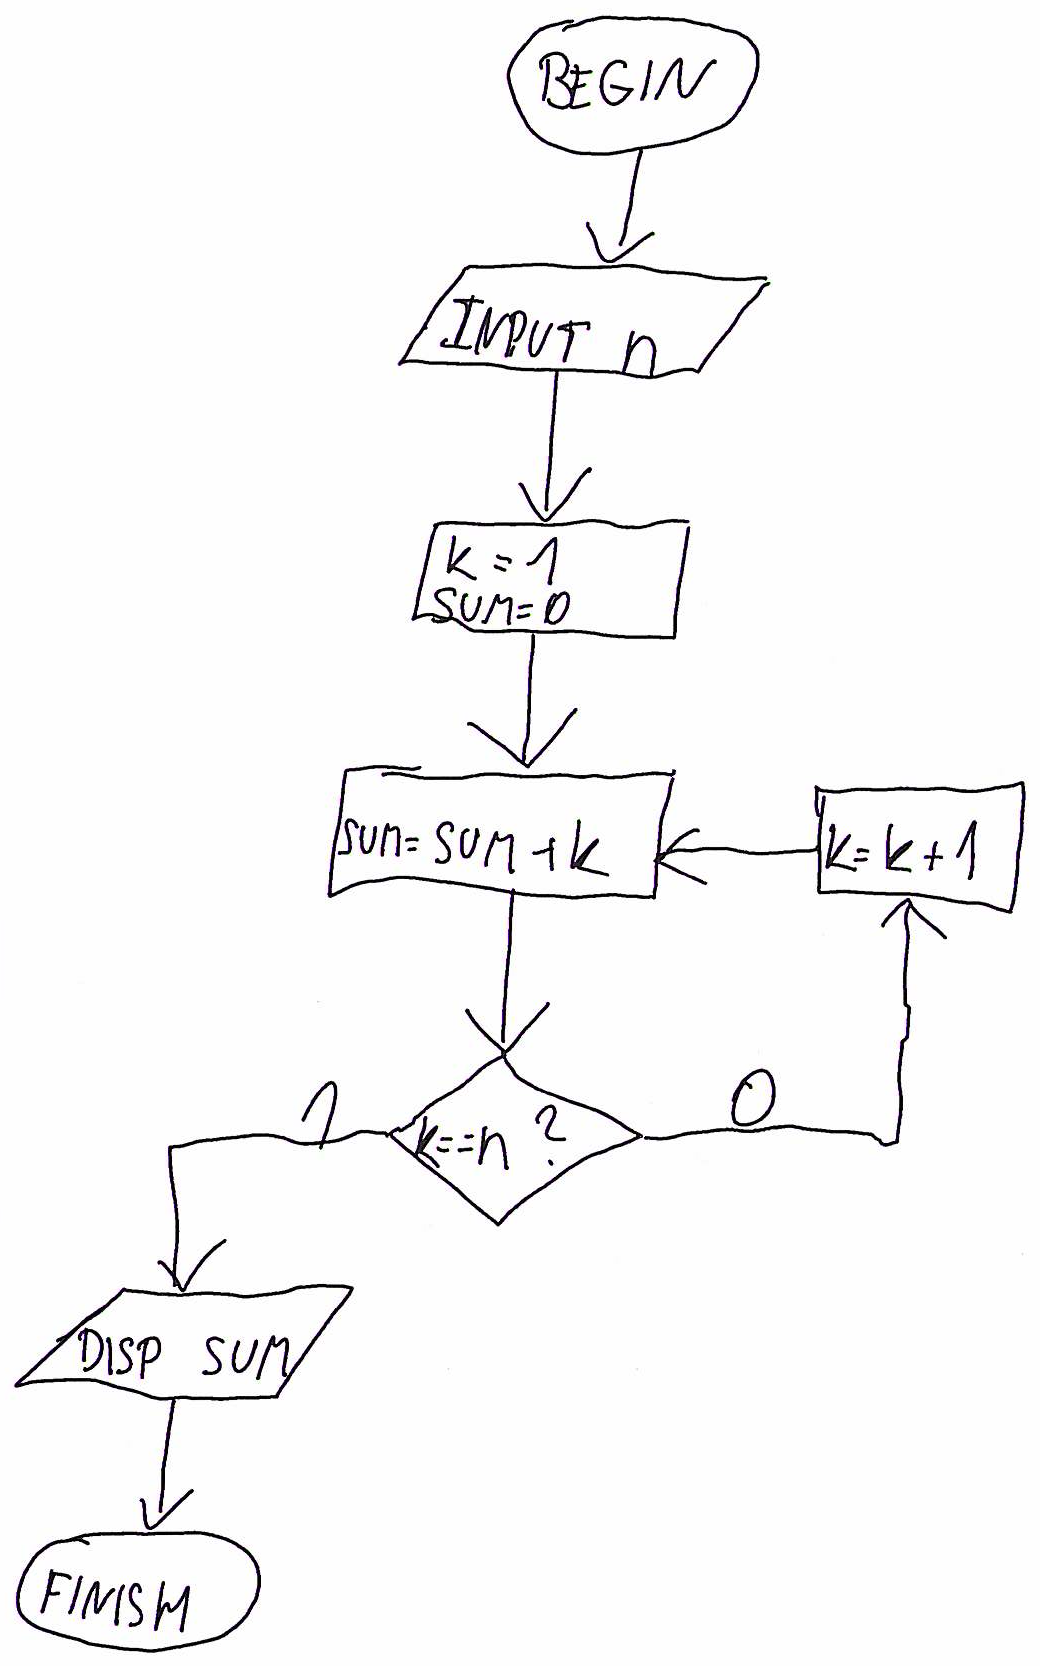 BEGIN
INPUT n
k = 1
SUM = 0
SUM = SUM + k
k = k + 1
k == n ?
1
0
DISP SUM
FINISH